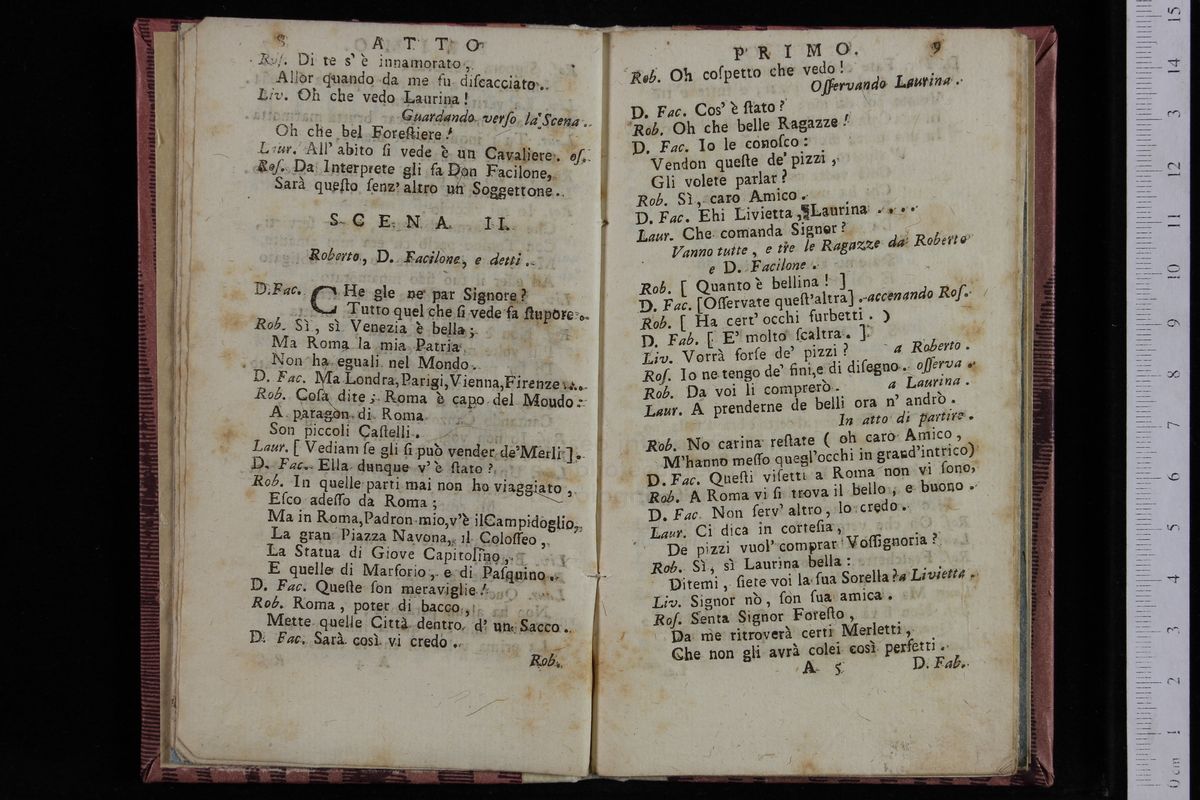 8 ATTO
Roſ. Di te s'è innamorato,
Allor quando da me fu diſcacciato..
Liv. Oh che vedo Laurina!
Guardando verſo la Scena.
Oh che bel Foreſtiere!
Laur. All'abito ſi vede è un Cavaliere. oſ.
Roſ. Da Interprete gli fa Don Facilone,
Sarà queſto ſenz'altro un Soggettone..
SCENA II.
Roberto, D. Facilone, e detti.
D.Fac. CHe gle ne par Signore?
Tutto quel che ſi vede fa ſtupore.
Rob. Sì, sì Venezia è bella;
Ma Roma la mia Patria
Non ha eguali nel Mondo.
D. Fac. Ma Londra, Parigi, Vienna, Firenze...
Rob. Coſa dite; Roma è capo del Moudo:
A paragon di Roma
Son piccoli Caſtelli.
Laur. [ Vediam ſe gli ſi può vender de'Merli ].
D. Fac. Ella dunque v'è ſtato?
Rob. In quelle parti mai non ho viaggiato,
Eſco adeſſo da Roma;
Ma in Roma, Padron mio, v'è il Campidoglio,
La gran Piazza Navona, il Coloſſeo,
La Statua di Giove Capitolino,
E quelle di Marforio, e di Paſquino.
D. Fac. Queſte ſon meraviglie!
Rob. Roma, poter di bacco,
Mette quelle Città dentro d'un Sacco.
D. Fac. Sarà così vi credo.
Rob.
PRIMO. 9
Rob. Oh coſpetto che vedo!
Oſſervando Laurina.
D. Fac. Cos'è ſtato?
Rob. Oh che belle Ragazze!
D. Fac. Io le conoſco:
Vendon queſte de' pizzi,
Gli volete parlar?
Rob. Sì, caro Amico.
D. Fac. Ehi Livietta, Laurina ....
Laur. Che comanda Signor?
Vanno tutte, e tre le Ragazze da Roberto
e D. Facilone.
Rob. [ Quanto è bellina! ]
D. Fac. [Oſſervate queſt'altra]. accenando Roſ.
Rob. [ Ha cert'occhi furbetti. )
D. Fab. [ E' molto ſcaltra. ]
Liv. Vorrà forſe de' pizzi? a Roberto.
Roſ. Io ne tengo de' fini, e di diſegno. oſſerva.
Rob. Da voi li comprerò. a Laurina.
Laur. A prenderne de belli ora n'andrò.
In atto di partire.
Rob. No carina reſtate ( oh caro Amico,
M'hanno meſſo quegl'occhi in grand'intrico)
D. Fac. Queſti viſetti a Roma non vi ſono,
Rob. A Roma vi ſi trova il bello, e buono.
D. Fac. Non ſerv'altro, lo credo.
Laur. Ci dica in corteſia,
De pizzi vuol' comprar Voſſignoria?
Rob. Sì, sì Laurina bella:
Ditemi, ſiete voi la ſua Sorella? a Livietta.
Liv. Signor nò, ſon ſua amica.
Roſ. Senta Signor Foreſto,
Da me ritroverà certi Merletti,
Che non gli avrà colei così perfetti.
A 5 D. Fab.
0 cm 1 2 3 4 5 6 7 8 9 10 11 12 13 14 15